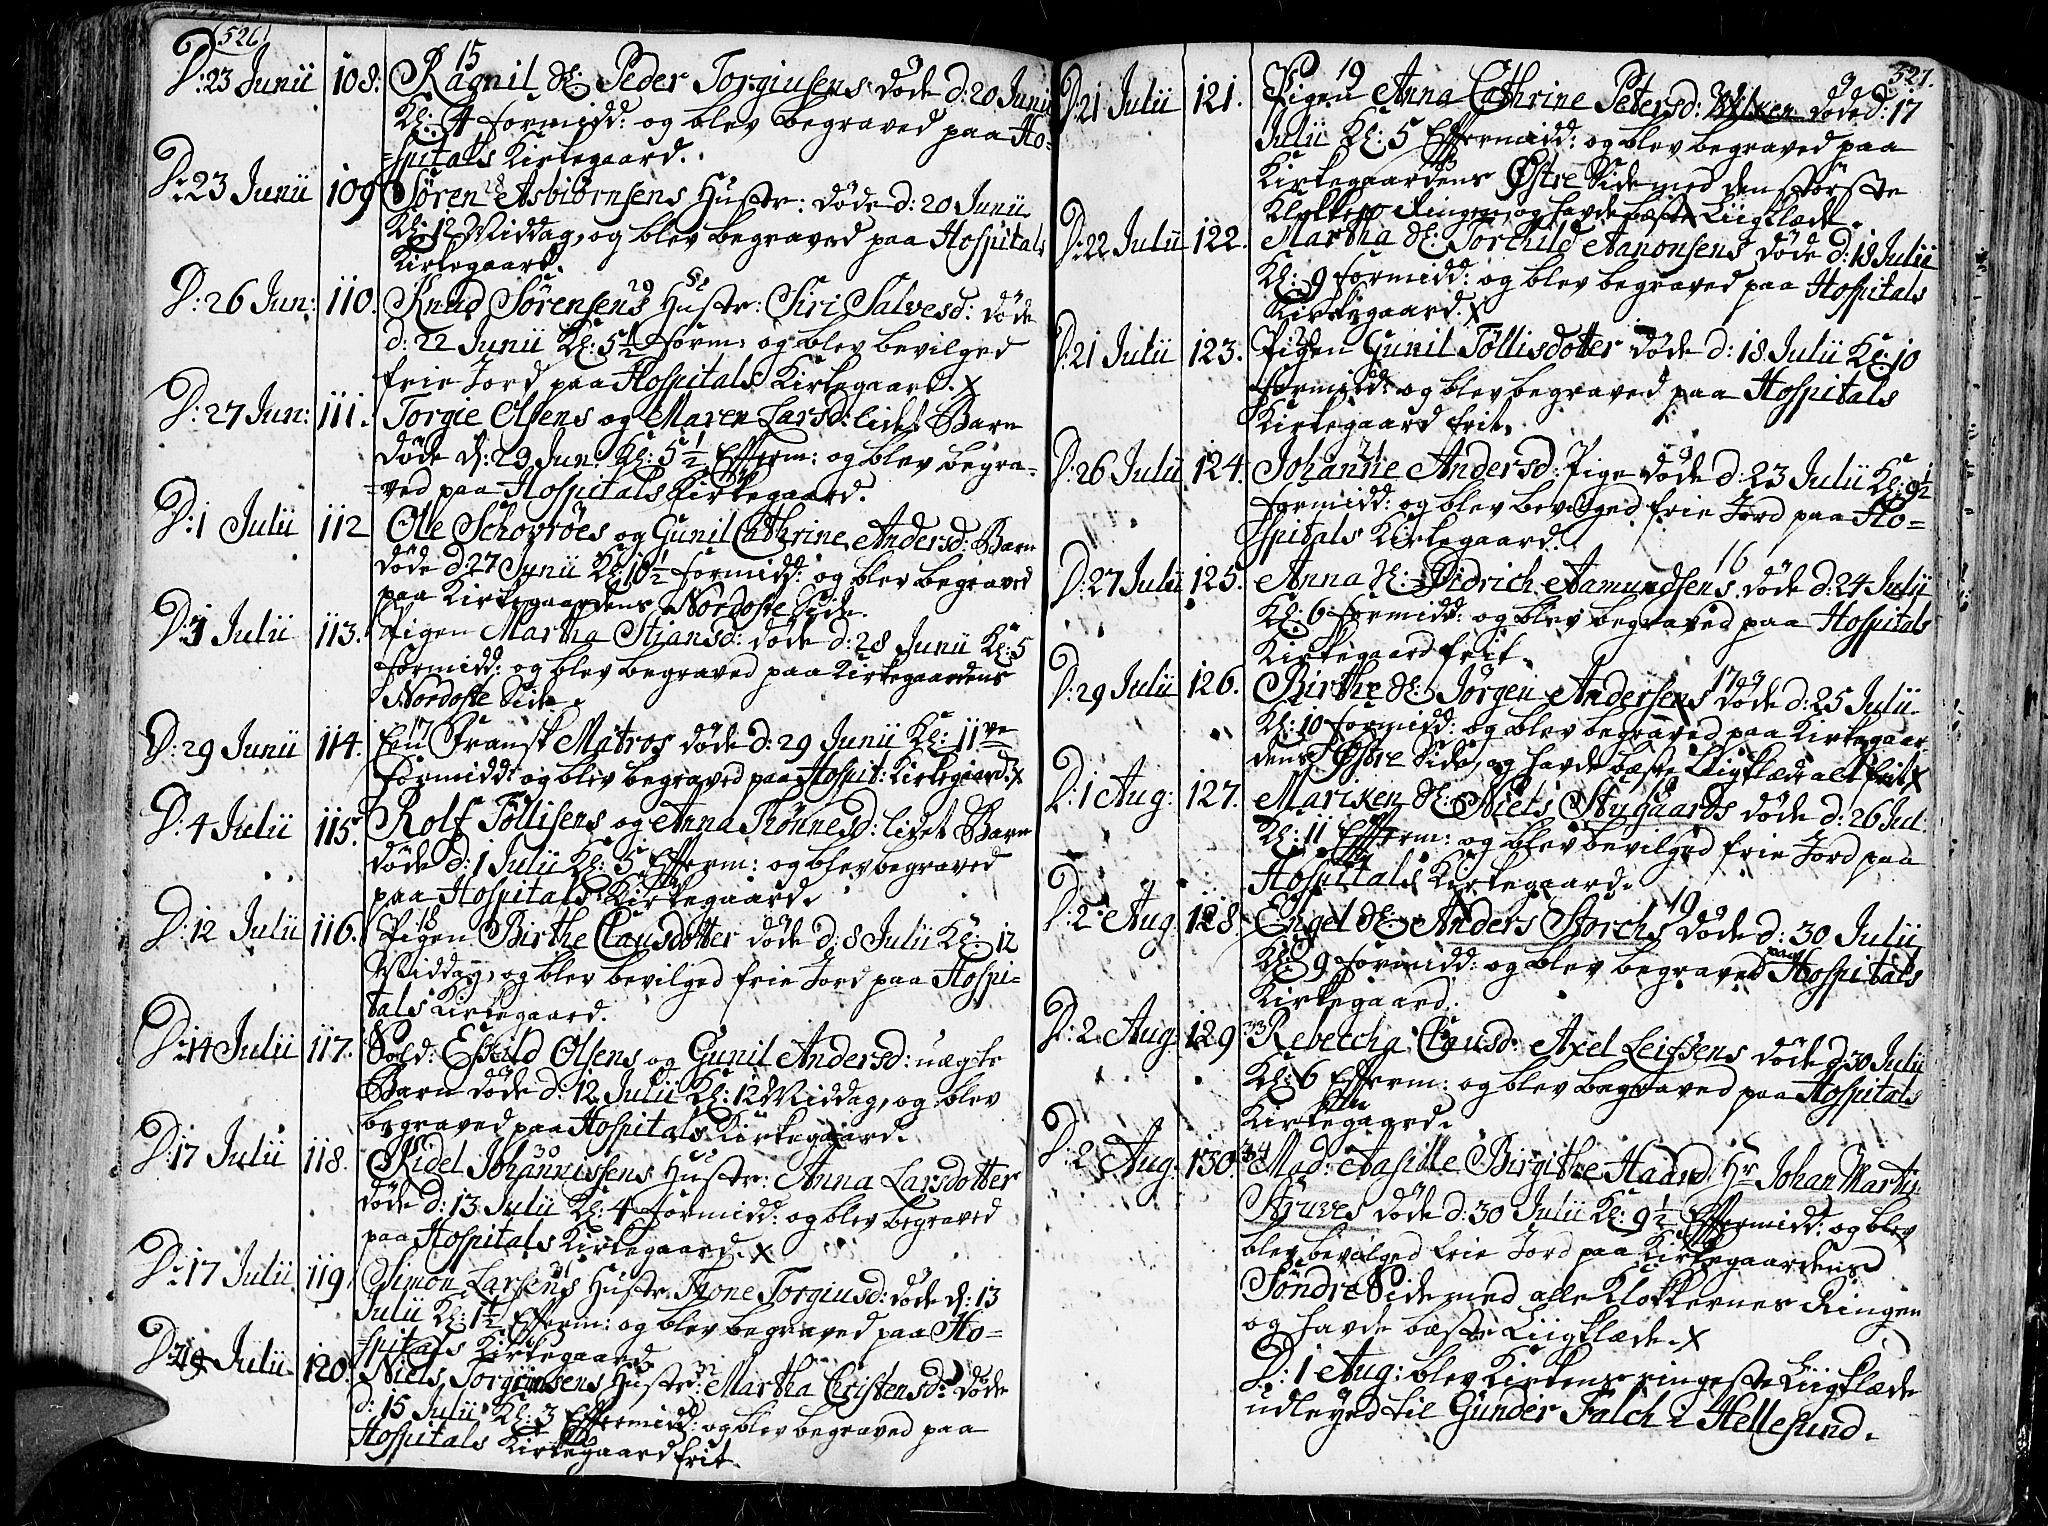 526
D: 23 Junii 108. 15 Ragnil S: Peder Torgiusens døde d: 20 Junii
Kl: 4 formidd: og blev begraved paa Ho-
spitals Kirkegaard.
D: 23 Junii 109 Søren Asbiørnsens Hustr: døde d: 20 Junii
Kl: 12 Middag, og blev begraved paa Hospitals
Kirkegaard.
D: 26 Jun: 110. Knud Sørensens 29 Hustr: Siri Salvesd: døde
d: 22 Junii Kl: 5½ form: og blev bevilged
frie Jord paa Hospitals Kirkegaard. X
D: 27 Jun: 111. Torgie Olsens og Maren Larsd: lidet Barn
døde d: 23 Jun. Kl: 5½ Efterm: og blev begra-
ved paa Hospitals Kirkegaard.
D: 1 Julii 112 Ole Schovrøes og Gunil Cathrine Andersd: Barn
døde d: 27 Junii Kl: 10½ formidd: og blev begraved
paa Kirkegaardens Nordoste Side.
D: 1 Julii 113. Pigen Martha Stiansd: døde d: 28 Junii Kl: 5
formidd: og blev begraved paa Kirkegaardens
Nordoste Side.
D: 29 Junii 114. 17 En Fransk Matros døde d: 29 Junii Kl: 11ve
formidd: og blev begraved paa Hospit: Kirkegaard. X
D: 4 Julii 115. Rolf Töllisens og Anna Tönnesd: lidet Barn
døde d: 1 Julii Kl: 5 Efterm: og blev begraved
paa Hospitals Kirkegaard.
D: 12 Julii 116. 18 Pigen Birthe Clausdotter døde d: 8 Julii Kl: 12
Middag, og blev bevilged frie Jord paa Hospi-
tals Kirkegaard.
D: 14 Julii 117. Sold: Eskild Olsens og Gunil Andersd: uægte
Barn døde d: 12 Julii Kl: 12 Middag, og blev
begraved paa Hospitals Kirkegaard.
D: 17 Julii 118. Ridel Johannissens 30 Hustr: Anna Larsdotter
døde d: 13 Julii Kl: 4 formidd: og blev begraved
paa Hospitals Kirkegaard. X
D: 17 Julii 119. Simon Larsens 31 Hustr. Tone Torgiusd: døde d: 13
Julii Kl: 1½ Efterm: og blev begraved paa Ho-
spitals Kirkegaard
D: 19 Julii 120. Niels Torgiusens Hustr: 32 Martha Christensd: døde
d: 15 Julii Kl: 3 Eftermidd: og blev begraved paa
Hospitals Kirkegaard frit.
527.
D: 21 Julii 121. 19 Pigen Anna Cathrine Petersd: Wilken døde d: 17
Julii Kl: 5 Eftermidd: og blev begraved paa
Kirkegaardens Østre Side med den største
Klokkes Ringen, og havde bæste Liigklæde.
D: 22 Julii 122. Martha S: Torchild Aanonsens døde d: 18 Julii
Kl: 9 formidd: og blev begraved paa Hospitals
Kirkegaard. X
D: 21 Julii 123. Pigen Gunil Töllisdotter døde d: 18 Julii Kl: 10
formidd: og blev begraved paa Hospitals
Kirkegaard frit.
D: 26 Julii 124. Johanne Andersd: Pige døde d: 23 Julii Kl: 9½
formidd: og blev bevilged frie Jord paa Ho-
spitals Kirkegaard.
D: 27 Julii 125. Anna S: Didrich Aamundsens 16 døde d: 24 Julii
Kl: 6 formidd: og blev begraved paa Hospitals
Kirkegaard frit.
D: 29 Julii 126. Birthe S: Jørgen Andersens 17 døde d: 25 Julii
Kl: 10 formidd: og blev begraved paa Kirkegaar-
dens Østre Side, og havde bæste Liigklæde alt frit X
D: 1 Aug: 127. Mariken S: Niels Nygaards døde d: 26 Jul.
Kl: 11 Efterm: og blev bevilged frie Jord paa
Hospitals Kirkegaard.
D: 2 Aug. 128. Engel S: Anders Storchs 19 døde d: 30 Julii
Kl: 9 formidd: og blev begraved paa Hospitals
Kirkegaard.
D: 2 Aug. 129 33 Rebetcha Clausd: Axel Leisens døde d: 30 Julii
Kl: 6 Efterm: og blev begraved paa Hospitals
Kirkegaard.
D: 2 Aug. 130. 34 Mad: Aasille Birgithe Haard Hr Johan Martin
Struves døde d: 30 Julii Kl: 9½ Eftermidd: og blev
blev bevilged frie Jord paa Kirkegaardens
Søndre Side med alle Klokkernes Ringen
og havde bæste Liigklæde. X
D: 1 Aug: blev Kirkens ringeste Liigklæde
udleyed til Gunder Falch i Hellesund.